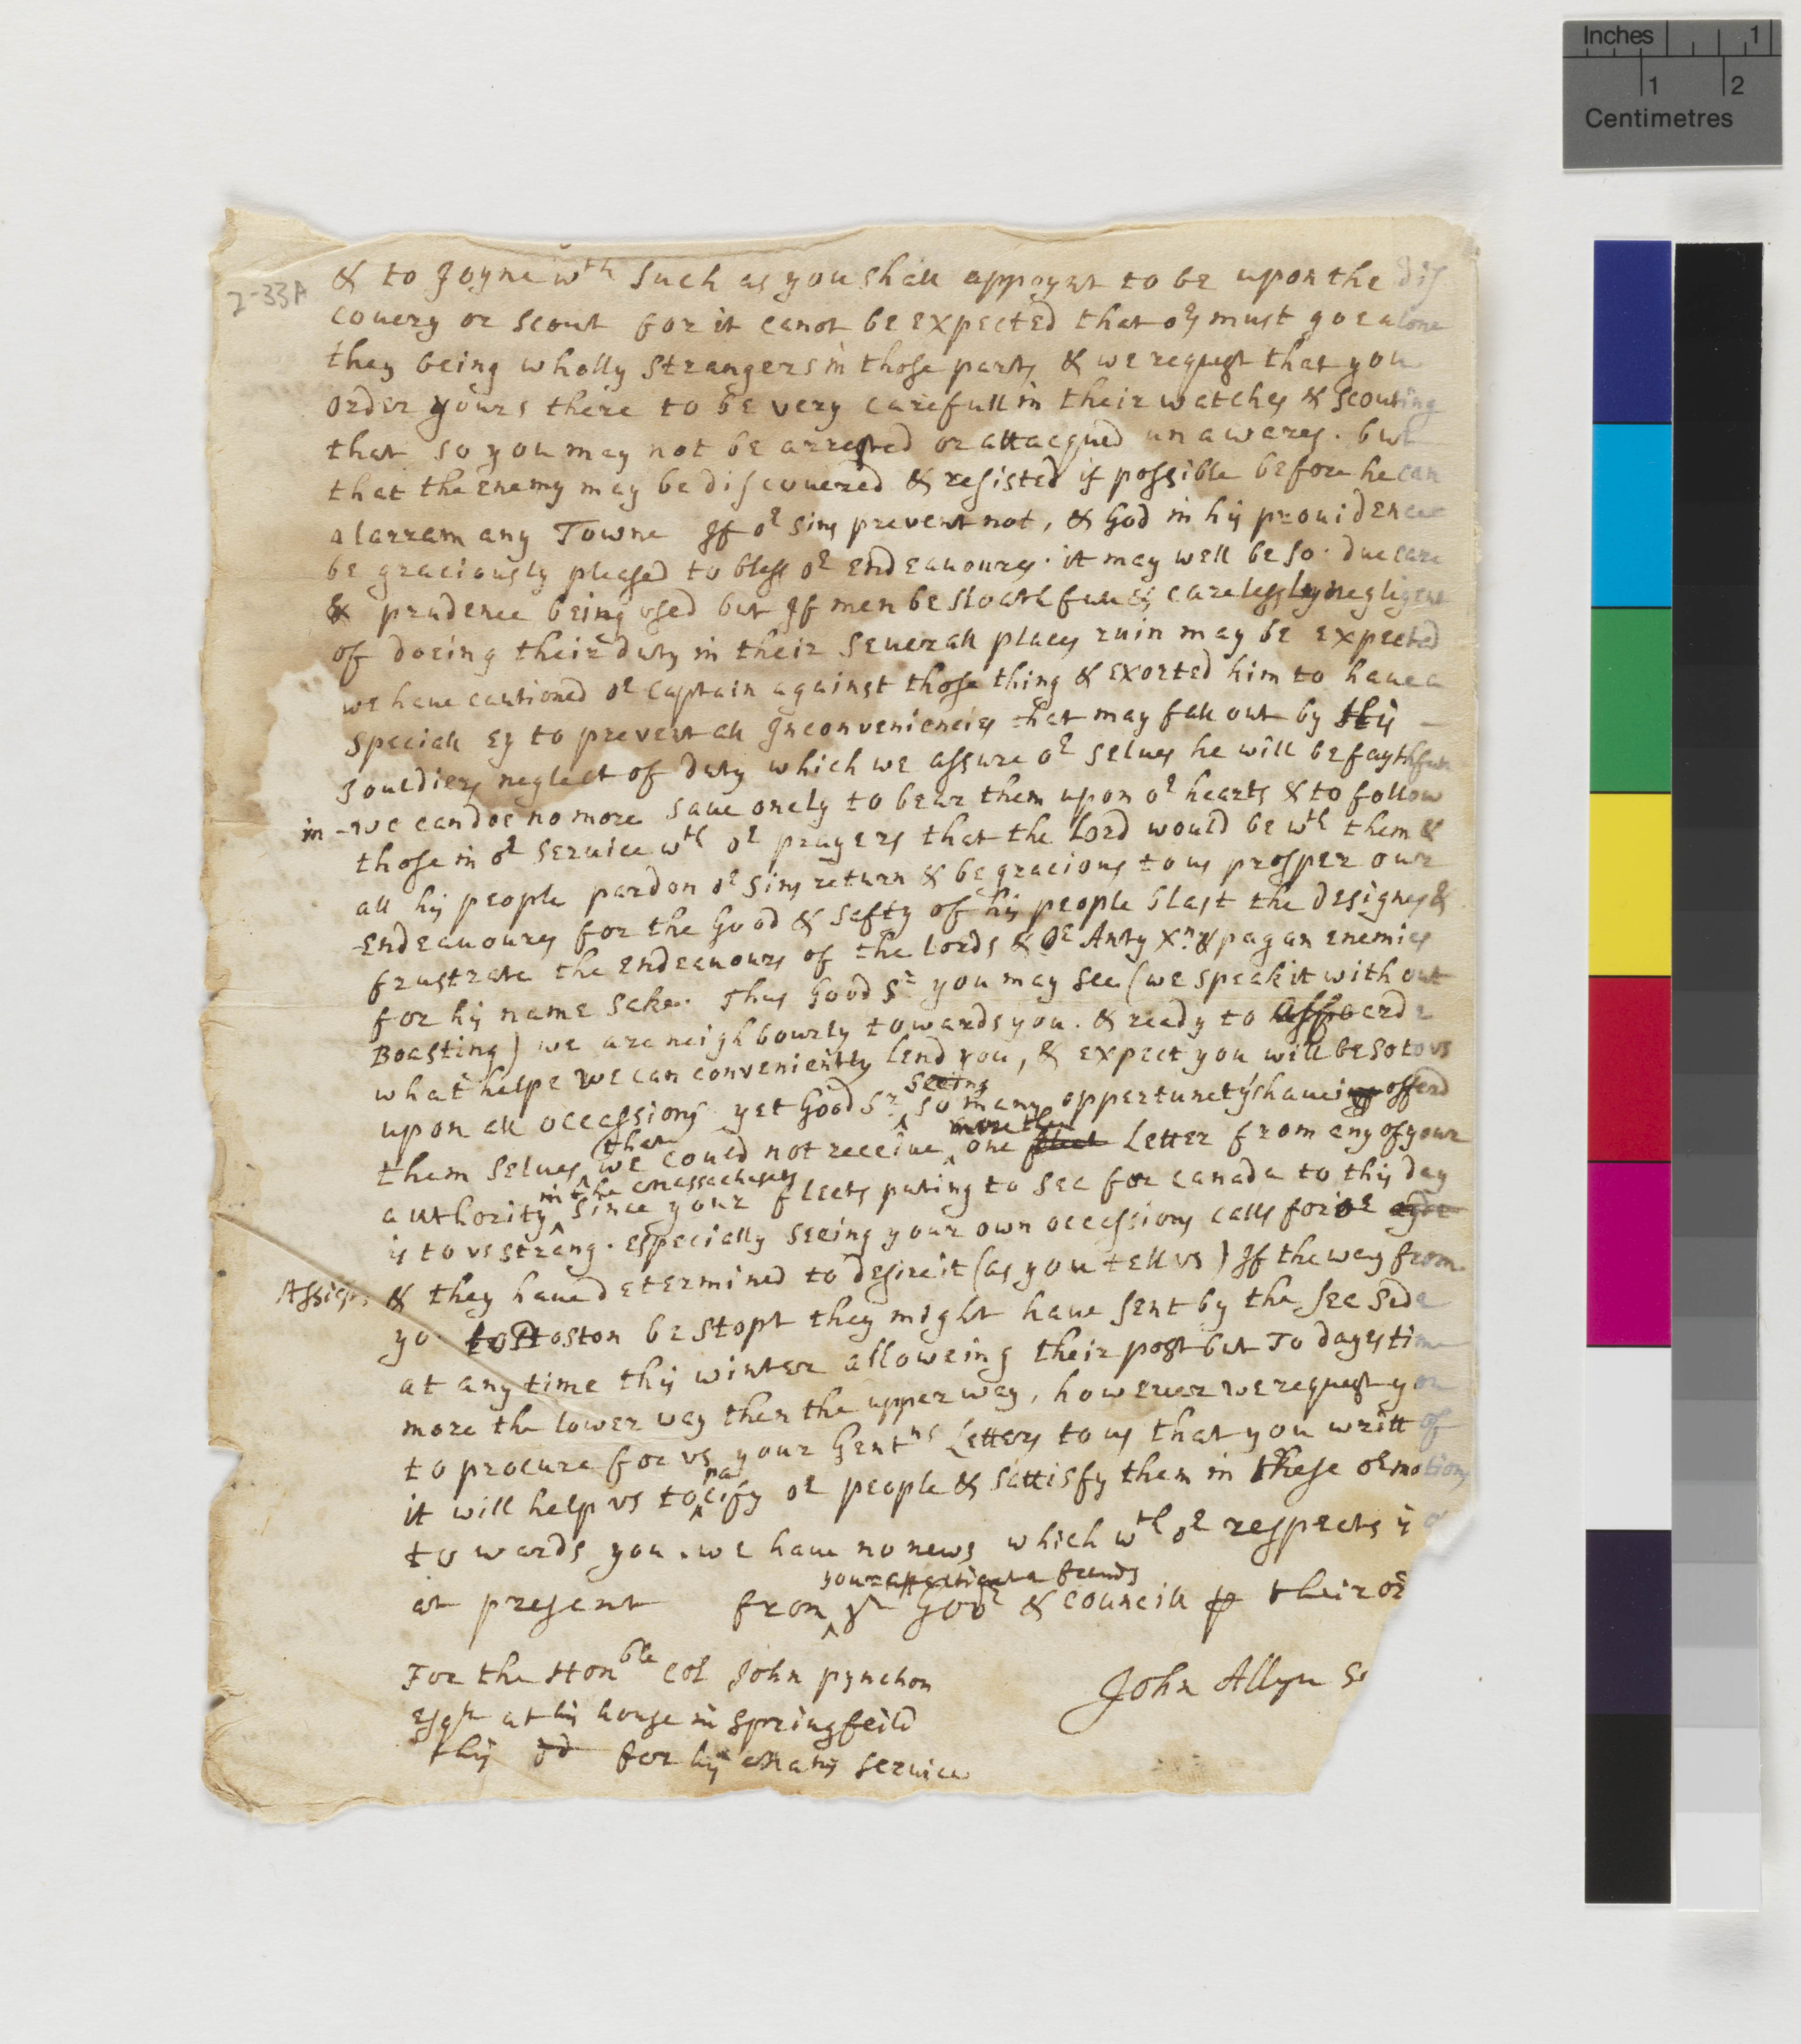 2-33A
& to Joyne wth Such as you shall appoynt to be upon the dis
couery or scout for it canot be expected that ors must goe alone
they being wholly strangers in those parts & we request that you
order yours there to be very carefull in their watches & scouting
that so you may not be arrested or attacqued unawares. but
that the enemy may be discouered & resisted if possible before he can
alarram any Towne If or sins prevent not, & God in his prouidence
be graciously pleased to bless or endeauours. it may well be so. due care
& prudence being vsed but If men be sloathfull & carelessly negligent
of doeing their duty in their Seuerall places ruin may be expected
we haue cautioned or Captain against those thing & exorted him to haue a
Speciall ey to prevent all Inconveniencies that may fall out by his
Souldiers neglect of duty which we assure or selues he will be faythfull
in - we can doe no more saue onely to bear them upon or hearts & to follow
those in or seruice wth or prayers that the Lord would be wth them &
all his people pardon or sins return & be gracious to us prosper our
Endeauours for the Good & safty of his people blast the designes &
frustrate the endeauours of the Lords & or Anty Xn & pagan enemies
for his name sake. Thus Good Sr you may see (we speak it without
Boasting) we are neighbourly towards you. & ready to afford
what helpe we can conveniently lend you, & expect you will be so to vs
upon all occassions yet Good Sr seeing so many oppertunetys haueing offerd
them selues that we could not receiue more then one Letter from any of your
authority in the Massachusets since your fleets puting to sea for canada to this day
is to vs strang. especially seeing your own occassions calls for or
Assists & they haue determined to desire it (as you tell vs) If the way from
yo. to Boston be stopt they might haue sent by the sea side
at any time this winter alloweing their post but 10 dayes time
more the lower way then the upper way, however we request you
to procure for vs your Gentns Letters to us that you writt of
it will help vs to pacify or people & sattisfy them in these or motions
towards you. we haue no news which wth or respects is
at present from your affectionate freinds ye Govr & Councill p their or
For the Honble Col John Pynchon
John Allyn Se
Esqr at his house in Springfeild
this dd for his Matys Seruice